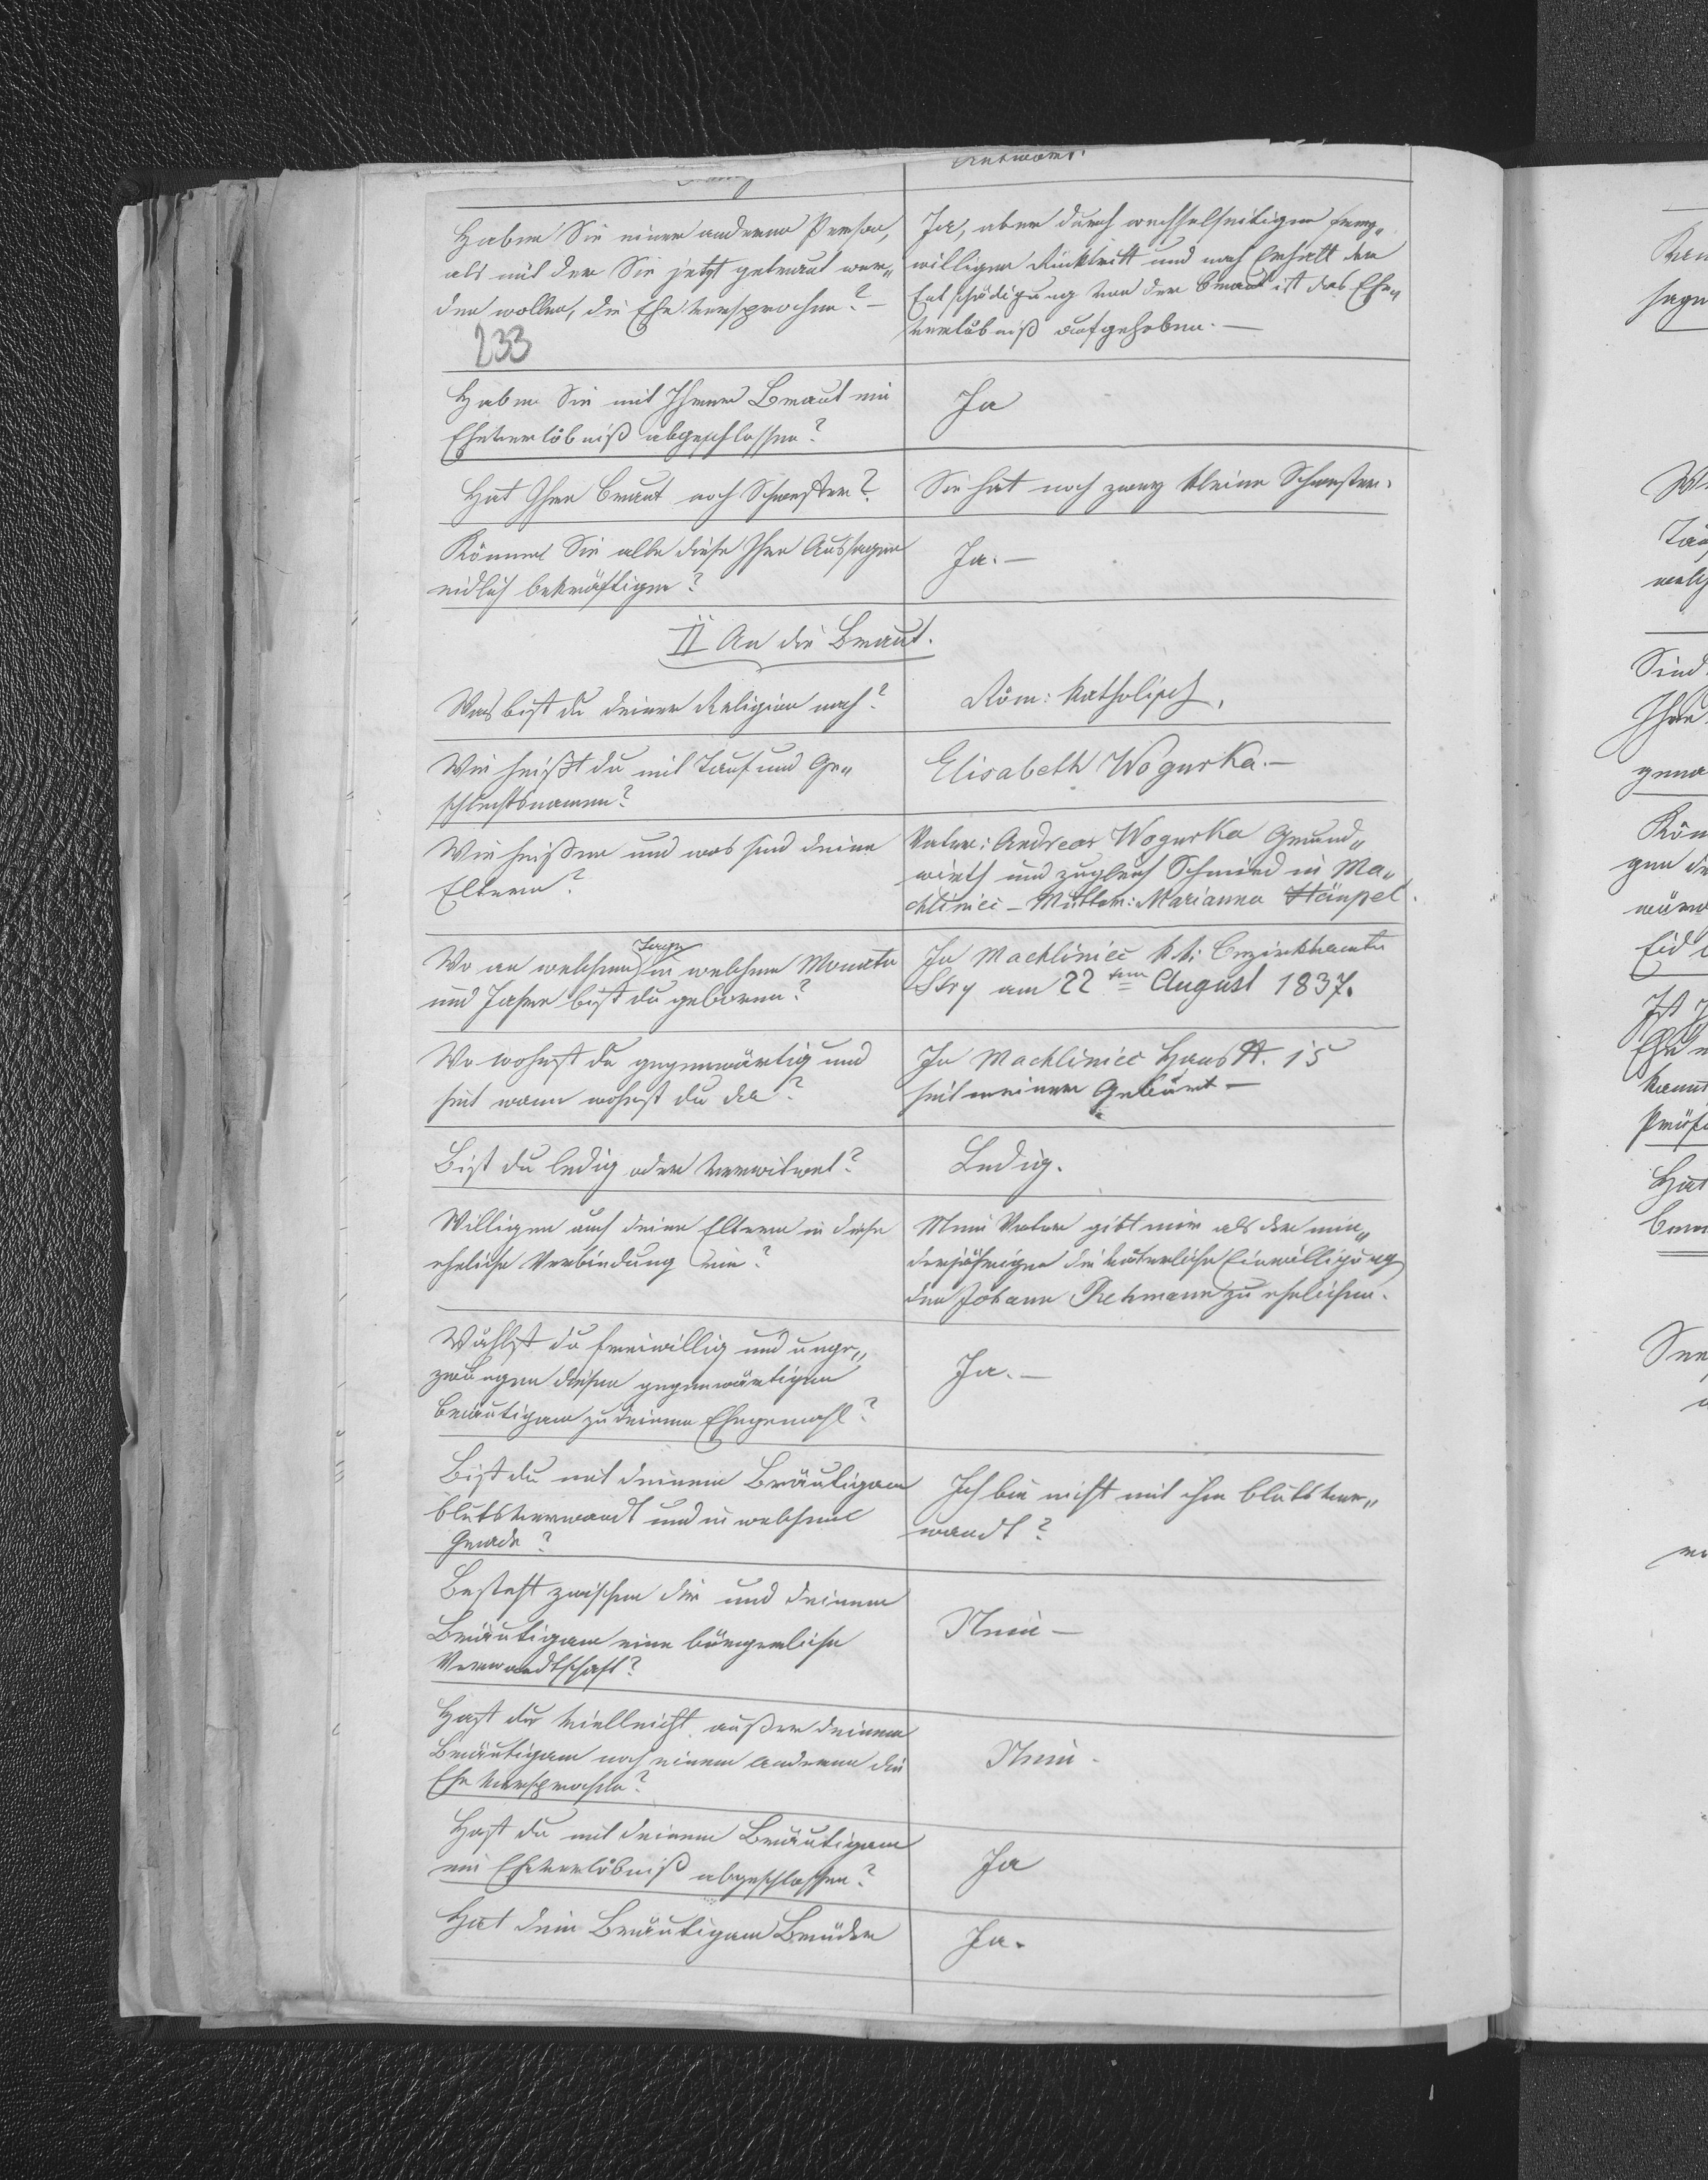 Antwort.
Haben Sie einer anderen Person,
als mit der Sie jetzt getraut wer„
den wollen, die Ehe versprochen? –
233
Ja, aber durch wechselseitigen frey„
willigen Rücktritt und nach Erhalt der
Entschädigung von der Braut ist das Ehe„
verlöbniß aufgehoben. –
Haben Sie mit Ihrer Braut ein
Eheverlöbniß abgeschlossen?
Ja
Hat Ihre Braut noch Schwestern?
Sie hat noch zwey kleine Schwestern.
Können Sie alle diese Ihre Aussagen
eidlich bekräftigen?
Ja. –
II An die Braut.
Was bist du deiner Religion nach?
Röm: katholisch,
Wie heißt du mit Tauf und Ge„
schlechtsnamen?
Elisabeth Wogurka. –
Wie heißen und was sind deine
Eltern?
Vater: Andreas Wogurka Grund„
wirth und zugleich Schmied in Ma„
chliniec – Mutter: Marianna Hänpel.
Tage
Wo an welchem in welchem Monate
und Jahre bist du geboren?
In Machliniec k.k. Bezirksamte
Stry am 22ten August 1837.
Wo wohnst du gegenwärtig und
seit wann wohnst du da?
In Machliniec Haus N. 15
seit meiner Geburt –
Bist du ledig oder verwitwet?
Ledig.
Willigen auch deine Eltern in diese
eheliche Verbindung ein?
Mein Vater gibt mir als der min„
derjährigen die väterliche Einwilligung
den Johann Rehmann zu ehelichen.
Wählst du freiwillig und unge„
zwungen diesen gegenwärtigen
Bräutigam zu deinem Ehegemahl?
Ja. –
Bist du mit deinem Bräutigam
blutsverwandt und in welchem
Grade?
Ich bin nicht mit ihm blutsver„
wandt?
Besteht zwischen dir und deinem
Bräutigam eine bürgerliche
Verwandtschaft?
Nein –
Hast du vielleicht außer deinem
Bräutigam noch einem anderen die
Ehe versprochen?
Nein.
Hast du mit deinem Bräutigam
ein Eheverlöbniß abgeschlossen?
Ja
Hat dein Bräutigam Brüder
Ja.